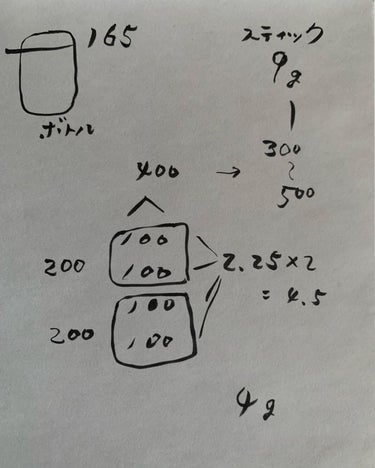 165
ボトル
スティック
9g
300
~
500
400 →
100
100
200
100
100
200
2.25×2
= 4.5
4g